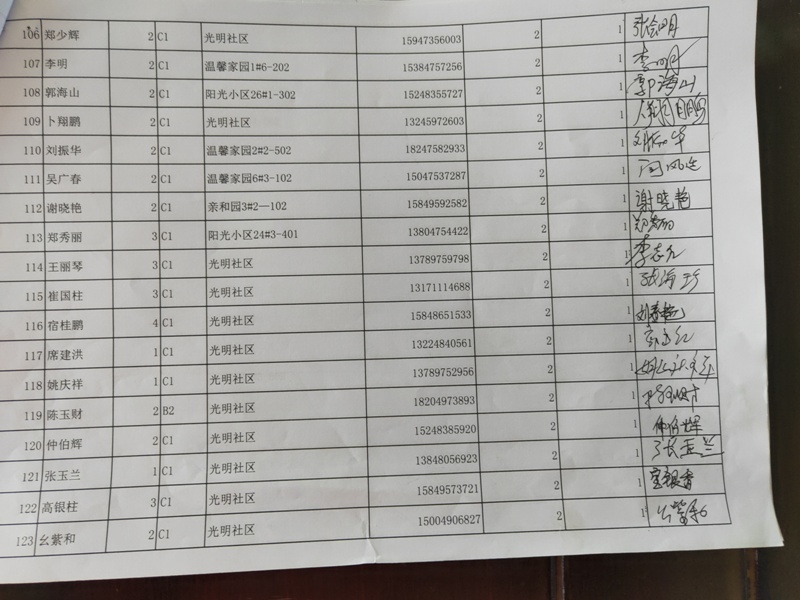 106 郑少辉 2 C1 光明社区 15947356003 2 1
107 李明 2 C1 温馨家园1#6-202 15384757256 2 1 李明
108 郭海山 2 C1 阳光小区26#1-302 15248355727 2 1 郭海山
109 卜翔鹏 2 C1 光明社区 13245972603 2 1
110 刘振华 2 C1 温馨家园2#2-502 18247582933 2 1 刘振华
111 吴广春 2 C1 温馨家园6#3-102 15047537287 2 1
112 谢晓艳 2 C1 亲和园3#2—102 15849592582 2 1 谢晓艳
113 郑秀丽 3 C1 阳光小区24#3-401 13804754422 2 1
114 王丽琴 3 C1 光明社区 13789759798 2 1 李志元
115 崔国柱 3 C1 光明社区 13171114688 2 1 张海珍
116 宿桂鹏 4 C1 光明社区 15848651533 2 1 刘春艳
117 席建洪 1 C1 光明社区 13224840561 2 1
118 姚庆祥 1 C1 光明社区 13789752956 2 1
119 陈玉财 2 B2 光明社区 18204973893 2 1
120 仲伯辉 2 C1 光明社区 15248385920 2 1 仲伯辉
121 张玉兰 1 C1 光明社区 13848056923 2 1 张玉兰
122 高银柱 3 C1 光明社区 15849573721 2 1
123 幺紫和 2 C1 光明社区 15004906827 2 1 幺紫和